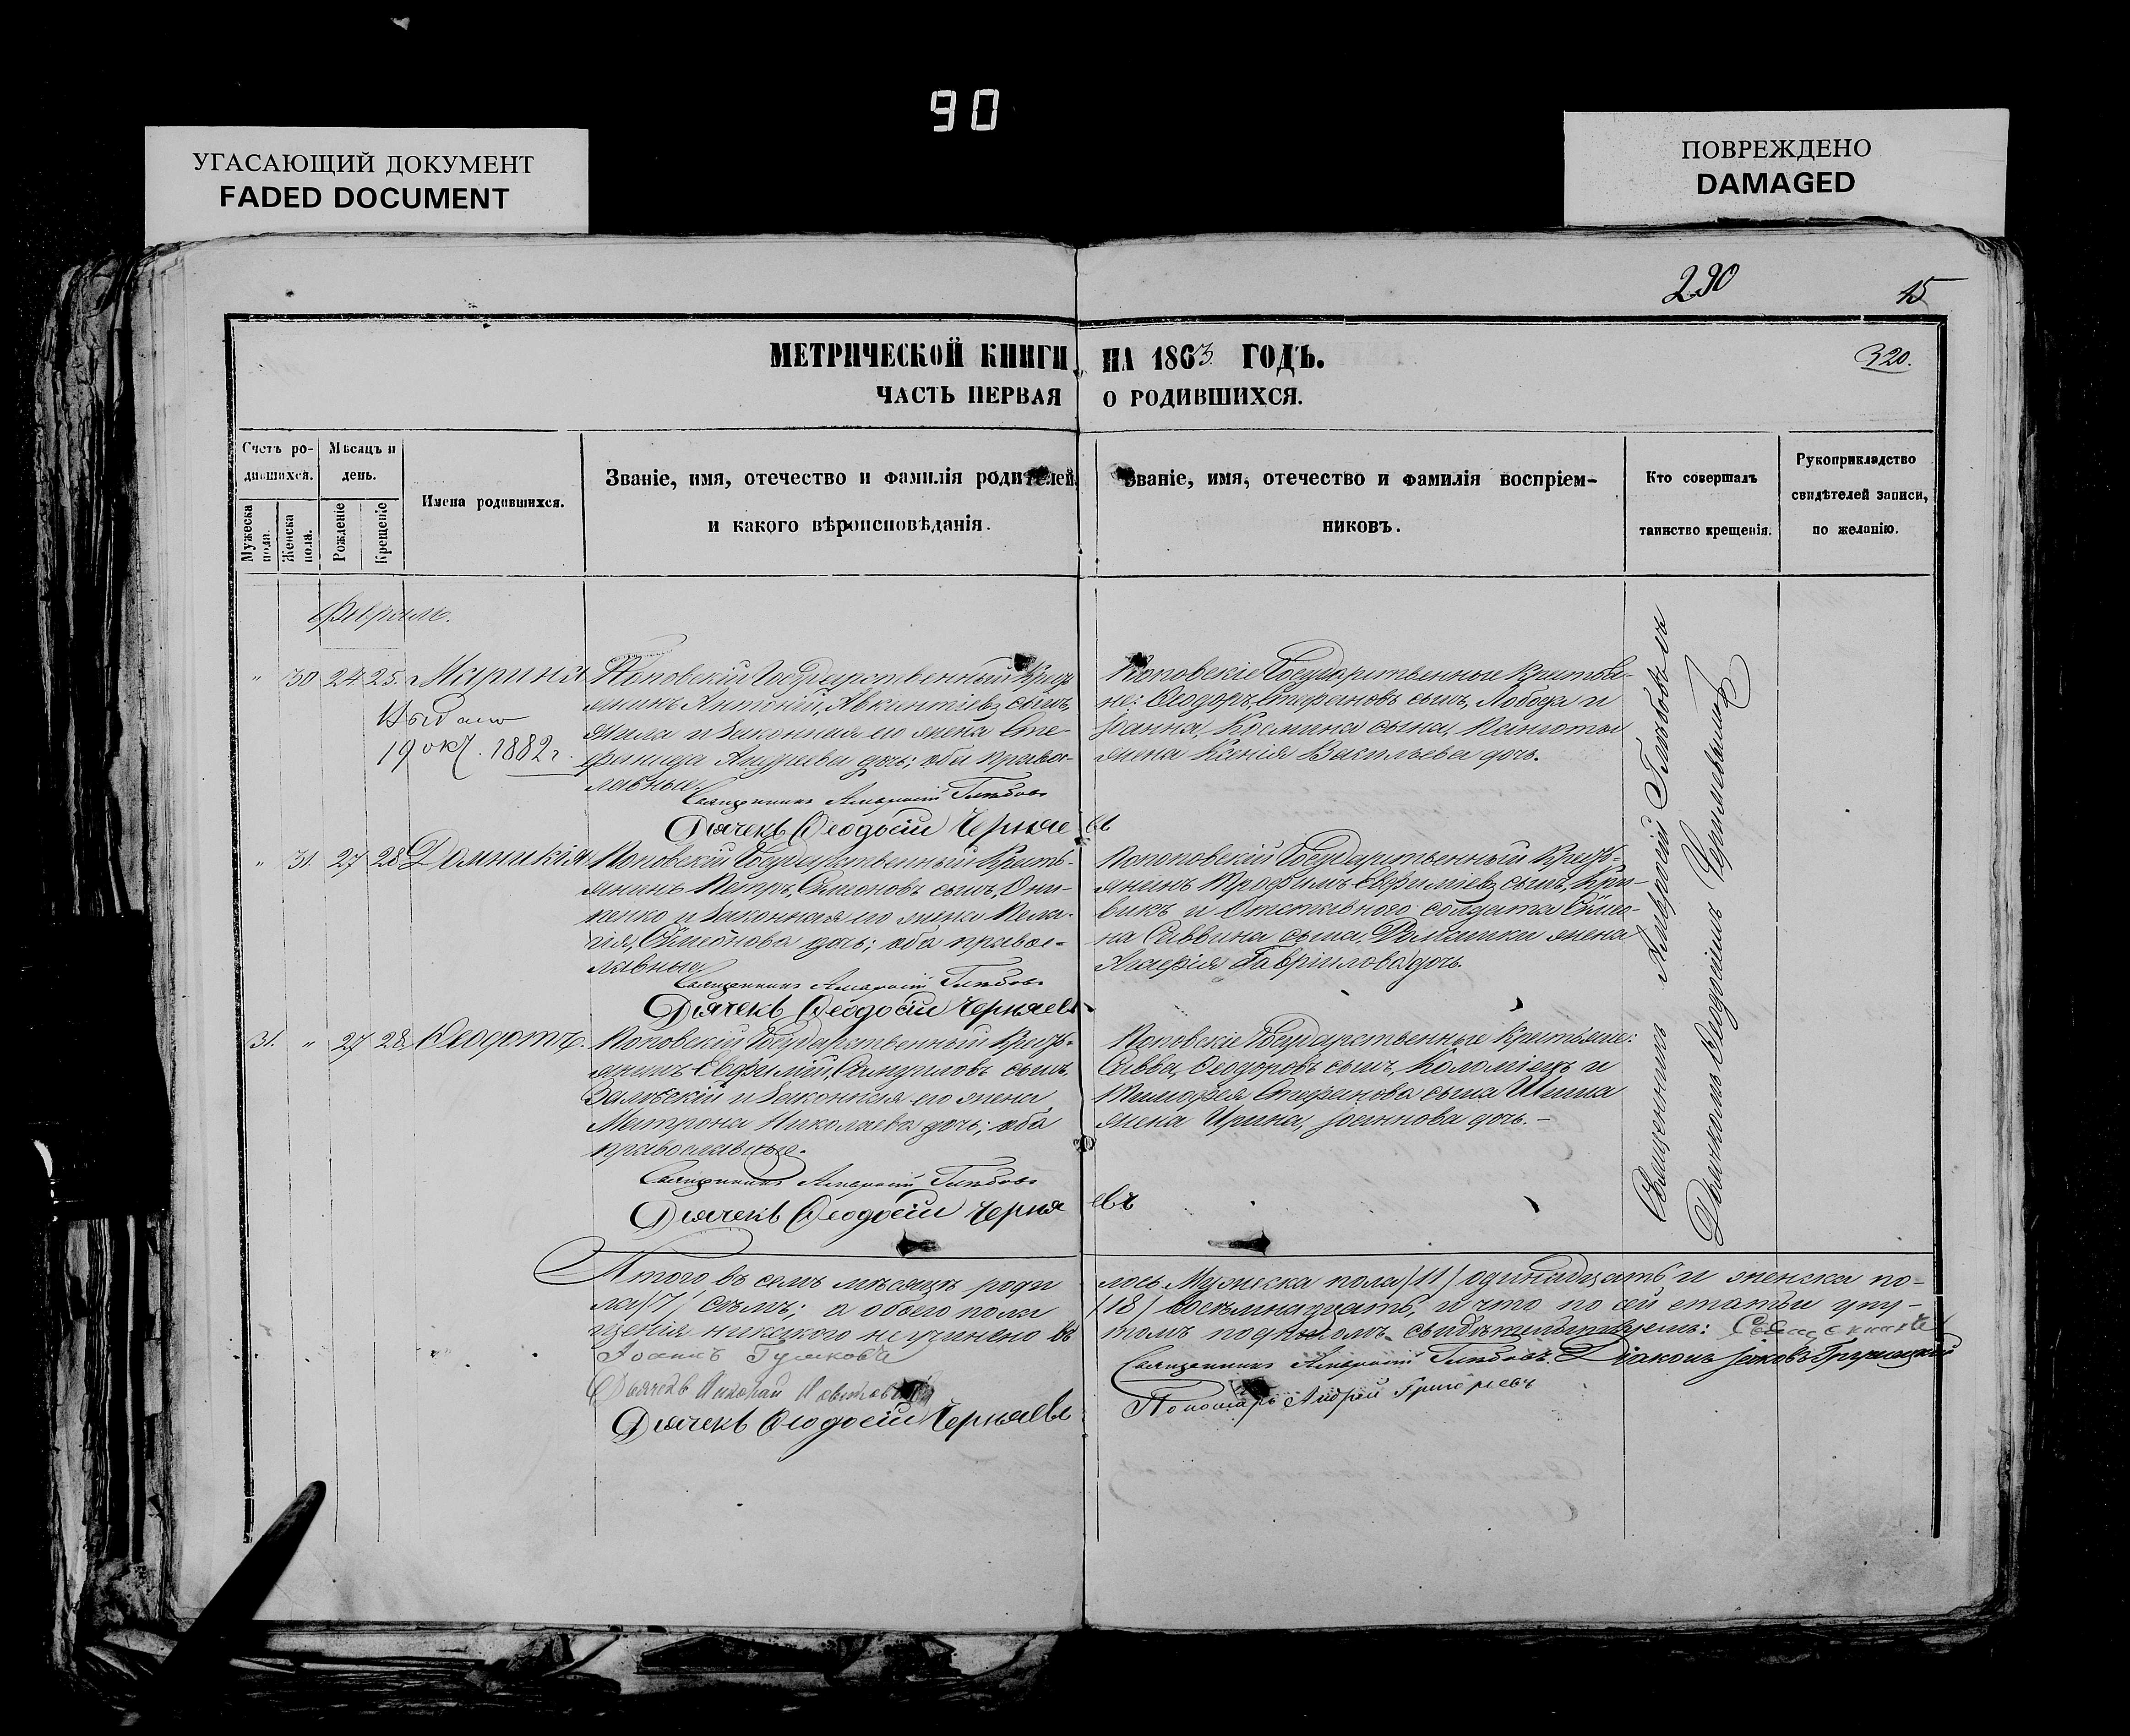 90
УГАСАЮЩИЙ ДОКУМЕНТ
FADED DOCUMENT
ПОВРЕЖДЕНО
DAMAGED
230
15
320.
МЕТРИЧЕСКОЙ КНИГИ НА 1863 ГОДЪ.
ЧАСТЬ ПЕРВАЯ О РОДИВШИХСЯ.
Счетъ ро-
дившихся.
Мужеска пола.
Женска пола.
Мѣсяцъ и
день.
Рожденіе
Крещеніе
Имена родившихся.
Званіе, имя, отечество и фамилія родителей,
и какого вѣроисповѣданія.
Званіе, имя, отечество и фамилія воспріем-
никовъ.
Кто совершалъ
таинство крещенія.
Рукоприкладство
свидѣтелей записи,
по желанію.
Февраль.
" 30 24 25. Марина
Выдано
19 окт. 1882 г.
Поповскій Государственный Кресть
янинъ Антоній, Авкентіевъ сынъ,
и законная его жена Сте
фанида Андреева дочь; оба право-
славные.
Священникъ Амвросій Глѣбовъ
Дьячекъ Феодосій Черняевъ
Поповскіе Государственные Крестья-
не: Феодоръ, Стефановъ сынъ, Лобода и
Іоанна, Космина сына,
жена Ксенія Васильева дочь.
" 31. 27 28 Домникія
Поповскій Государственный Кресть-
янинъ Петръ, Симоновъ сынъ, Они-
щенко и законная его жена Пела-
гія, Симеонова дочь; оба право-
славные
Священникъ Амвросій Глѣбовъ
Дьячекъ Феодосій Черняевъ
Государственный Кресть-
янинъ Трофимъ Евфиміевъ сынъ, Кри-
викъ и Отставного солдата Симо-
на Саввина сына, жена
Гавріилова дочь.
31. " 27 28. Феодотъ.
Поповскій Государственный Кресть-
янинъ Евфимій, Самуиловъ сынъ,
Залѣскій и законная его жена
Матрона Николаева дочь; оба
православные.
Священникъ Амвросій Глѣбовъ
Дьячекъ Феодосій Черняевъ
Поповскіе Государственные Крестьяне:
Савва, Феодоровъ сынъ, Коломіецъ и
Тимофея Стефанова сына Шиша
жена Ирина, Іоаннова дочь. –
Священникъ Амвросій Глѣбовъ съ
Дьячкомъ Феодосіемъ Черняевымъ
Итого, въ семъ мѣсяцѣ роди лось Мужеска пола /11/ одинадцать и женска по-
/18/ восемнадцать, и что по сей статьи упу-
щенія никакого не учинено въ томъ подписомъ свидѣтельствуемъ: Священникъ
Іоаннъ
Священникъ Амвросій Глѣбовъ. Діаконъ
Дьячекъ Николай
Пономарь Андрей Григорьевъ
Дьячекъ Феодосій Черняевъ